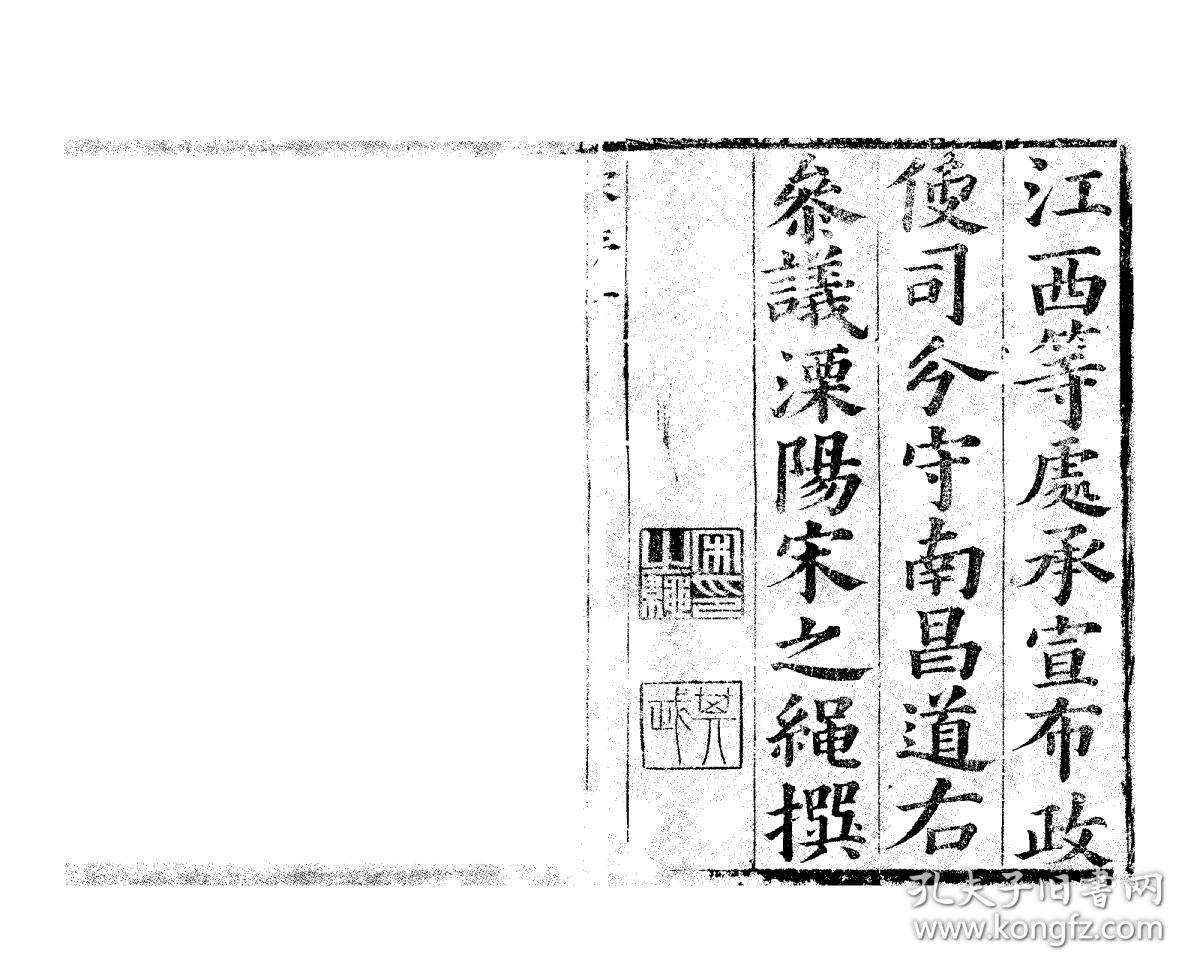 江西等處承宣布政
使司分守南昌道右
參議溧陽宋之繩撰
宋印之繩
孔夫子旧書网
www.kongfz.com